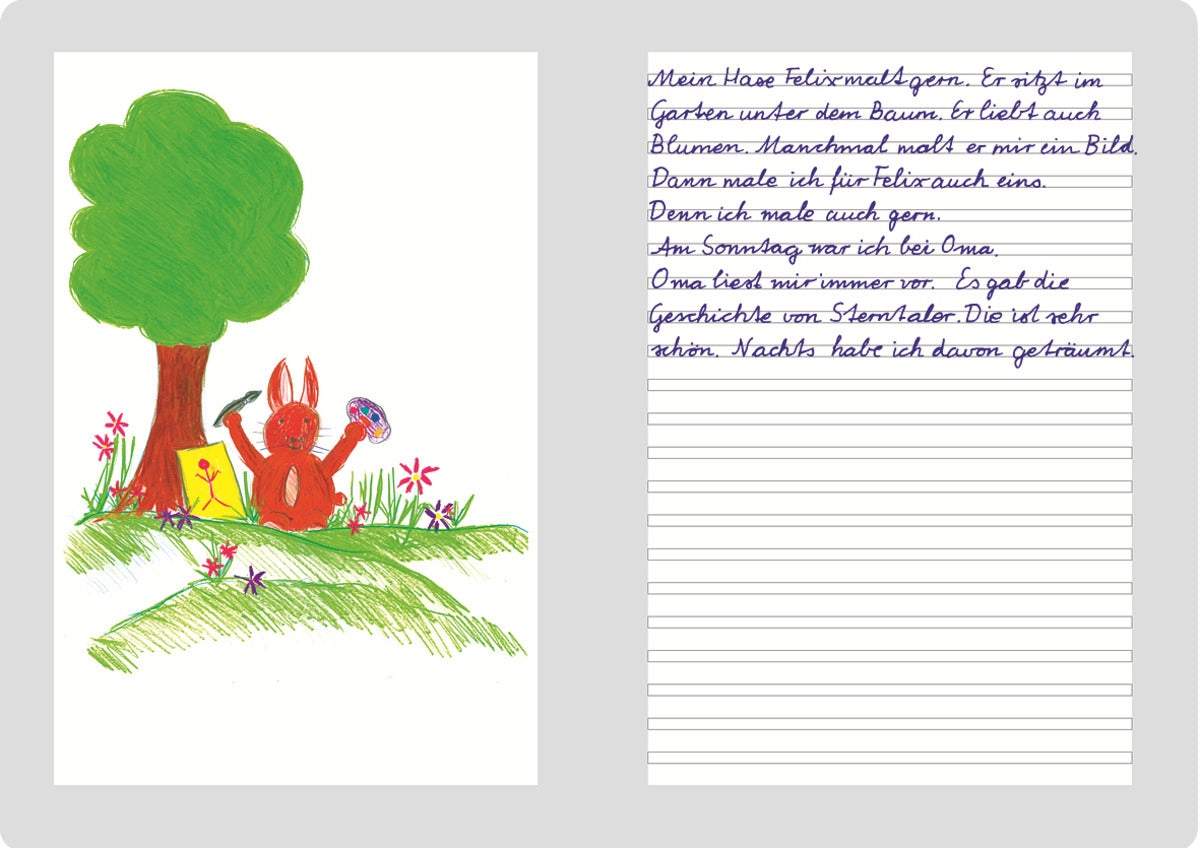 Mein Hase Felix malt gern. Er sitzt im
Garten unter dem Baum. Er liebt auch
Blumen. Manchmal malt er mir ein Bild.
Dann male ich für Felix auch eins.
Denn ich male auch gern.
Am Sonntag war ich bei Oma.
Oma liest mir immer vor. Es gab die
Geschichte von Sterntaler. Die ist sehr
schön. Nachts habe ich davon geträumt.